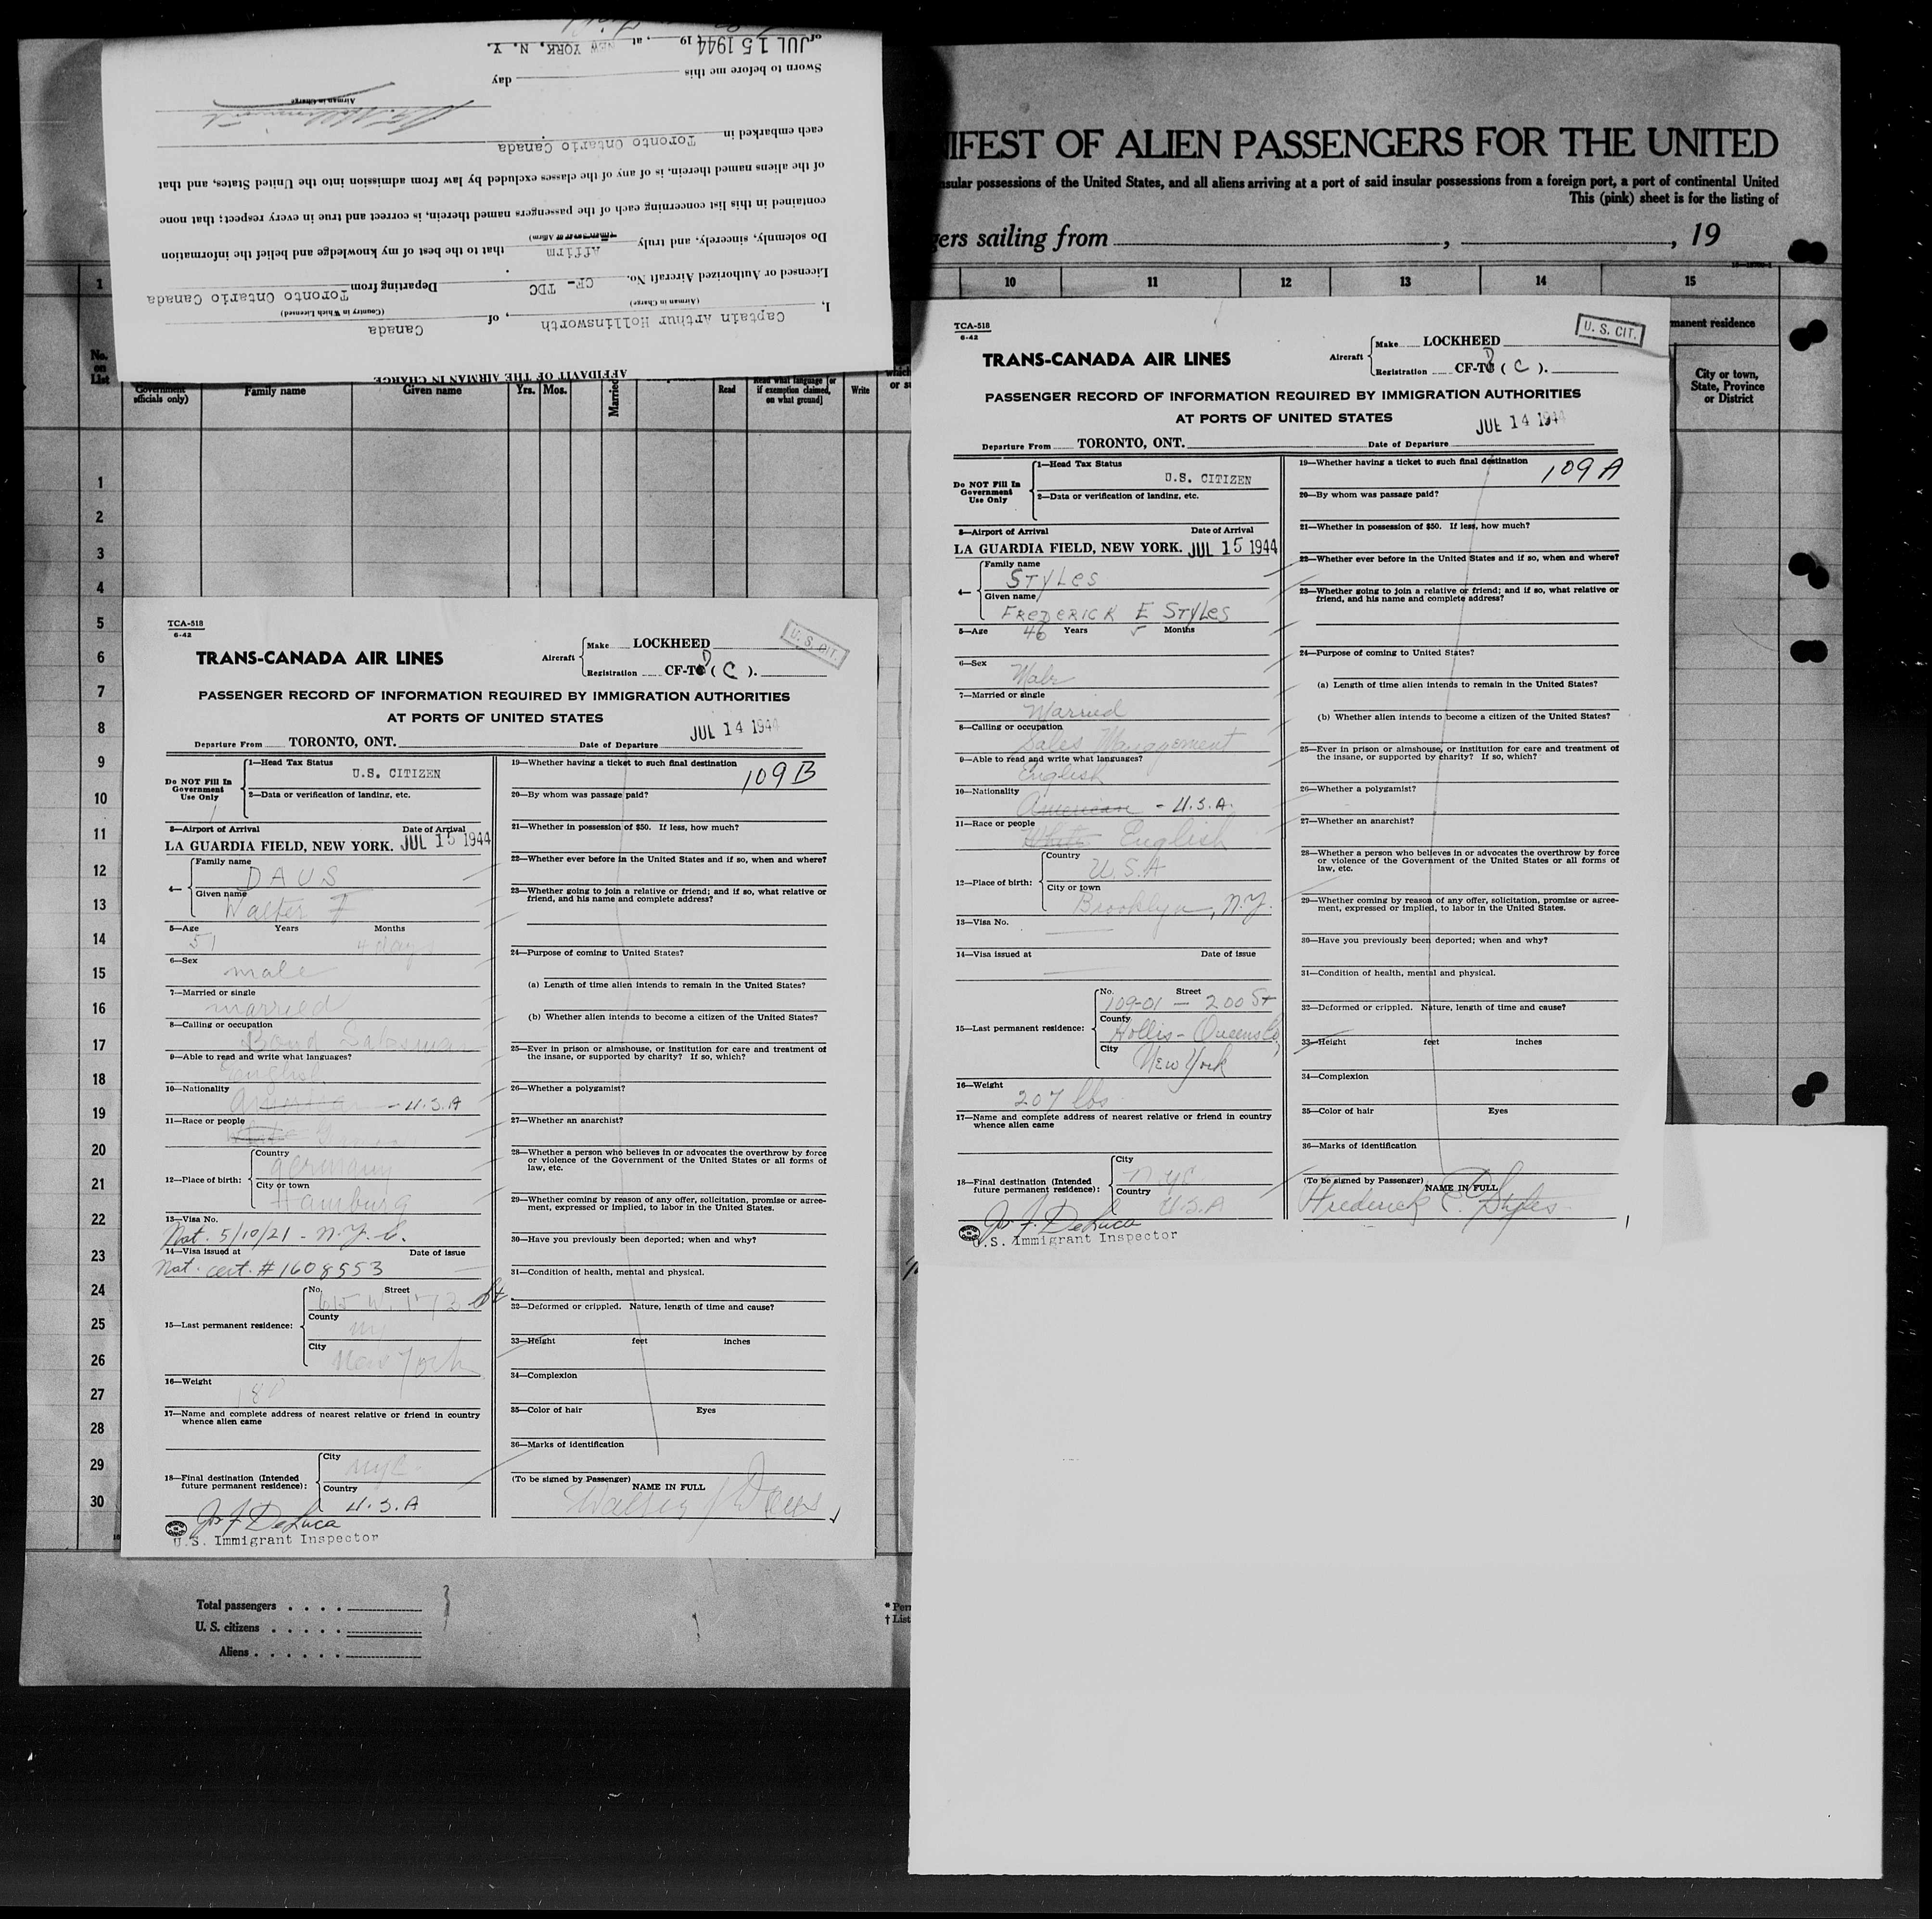 AFFIDAVIT OF THE AIRMAN IN CHARGE
I, Captain Arthur Hollinsworth, of Canada
(Airman in Charge) (Country in Which Licensed)
Licensed or Authorized Aircraft No. CF- TDC Departing from Toronto Ontario Canada
Do solemnly, sincerely, and truly Affirm that to the best of my knowledge and belief the information
contained in this list concerning each of the passengers named therein, is correct and true in every respect; that none
of the aliens named therein, is of any of the classes excluded by law from admission into the United States, and that
each embarked in Toronto Ontario Canada
Airman in Charge
Sworn to before me this day
of JUL 15 1944, 19 , at NEW YORK, N. Y.
IFEST OF ALIEN PASSENGERS FOR THE UNITED
insular possessions of the United States, and all aliens arriving at a port of said insular possessions from a foreign port, a port of continental United
This (pink) sheet is for the listing of
gers sailing from , , 19
1 10 11 12 13 14 15
No. on List
Government officials only)
Family name Given name Yrs. Mos. Married Read Read what language [or if exemption claimed, on what ground] Write
manent residence
City or town, State, Province or District
1
2
3
4
5
6
7
8
9
10
11
12
13
14
15
16
17
18
19
20
21
22
23
24
25
26
27
28
29
30
TCA-518
6-42
U. S. CIT.
TRANS-CANADA AIR LINES
Aircraft Make LOCKHEED
Registration CF-TD (C).
PASSENGER RECORD OF INFORMATION REQUIRED BY IMMIGRATION AUTHORITIES
AT PORTS OF UNITED STATES
JUL 14 1944
Departure From TORONTO, ONT. Date of Departure
Do NOT Fill In Government Use Only
1—Head Tax Status
U.S. CITIZEN
2—Data or verification of landing, etc.
3—Airport of Arrival Date of Arrival
LA GUARDIA FIELD, NEW YORK. JUL 15 1944
4— Family name
DAUS
Given name
Walter F
5—Age Years Months
51 4 days
6—Sex
male
7—Married or single
married
8—Calling or occupation
Bond Salesman
9—Able to read and write what languages?
English
10—Nationality
American - U.S.A
11—Race or people
White German
12—Place of birth: Country
Germany
City or town
Hamburg
13—Visa No.
Nat. 5/10/21 - N.Y.C.
14—Visa issued at Date of issue
Nat. cert. #1608553
15—Last permanent residence: No. Street
615 W. 173 St.
County
NY
City
New York
16—Weight
180
17—Name and complete address of nearest relative or friend in country
whence alien came
18—Final destination (Intended future permanent residence): City
NYC
Country
U.S.A
Jos F DeLuca
U.S. Immigrant Inspector
19—Whether having a ticket to such final destination
109B
20—By whom was passage paid?
21—Whether in possession of $50. If less, how much?
22—Whether ever before in the United States and if so, when and where?
23—Whether going to join a relative or friend; and if so, what relative or
friend, and his name and complete address?
24—Purpose of coming to United States?
(a) Length of time alien intends to remain in the United States?
(b) Whether alien intends to become a citizen of the United States?
25—Ever in prison or almshouse, or institution for care and treatment of
the insane, or supported by charity? If so, which?
26—Whether a polygamist?
27—Whether an anarchist?
28—Whether a person who believes in or advocates the overthrow by force
or violence of the Government of the United States or all forms of
law, etc.
29—Whether coming by reason of any offer, solicitation, promise or agree-
ment, expressed or implied, to labor in the United States.
30—Have you previously been deported; when and why?
31—Condition of health, mental and physical.
32—Deformed or crippled. Nature, length of time and cause?
33—Height feet inches
34—Complexion
35—Color of hair Eyes
36—Marks of identification
(To be signed by Passenger) NAME IN FULL
Walter F Daus
Total passengers
U. S. citizens
Aliens
* Per
† List
TCA-518
6-42
U. S. CIT.
TRANS-CANADA AIR LINES
Aircraft Make LOCKHEED
Registration CF-TD (C).
PASSENGER RECORD OF INFORMATION REQUIRED BY IMMIGRATION AUTHORITIES
AT PORTS OF UNITED STATES
JUL 14 1944
Departure From TORONTO, ONT. Date of Departure
Do NOT Fill In Government Use Only
1—Head Tax Status
U.S. CITIZEN
2—Data or verification of landing, etc.
3—Airport of Arrival Date of Arrival
LA GUARDIA FIELD, NEW YORK. JUL 15 1944
4— Family name
STYLES
Given name
FREDERICK E STYLES
5—Age 46 Years Months
6—Sex
Male
7—Married or single
Married
8—Calling or occupation
Sales Management
9—Able to read and write what languages?
English
10—Nationality
American - U.S.A.
11—Race or people
White English
12—Place of birth: Country
U.S.A
City or town
Brooklyn, N.Y.
13—Visa No.
14—Visa issued at Date of issue
15—Last permanent residence: No. Street
109-01 — 200 St
County
Hollis - Queens Co,
City
New York
16—Weight
207 lbs
17—Name and complete address of nearest relative or friend in country
whence alien came
18—Final destination (Intended future permanent residence): City
NYC
Country
U.S.A
Jos F. DeLuca
U.S. Immigrant Inspector
19—Whether having a ticket to such final destination
109A
20—By whom was passage paid?
21—Whether in possession of $50. If less, how much?
22—Whether ever before in the United States and if so, when and where?
23—Whether going to join a relative or friend; and if so, what relative or
friend, and his name and complete address?
24—Purpose of coming to United States?
(a) Length of time alien intends to remain in the United States?
(b) Whether alien intends to become a citizen of the United States?
25—Ever in prison or almshouse, or institution for care and treatment of
the insane, or supported by charity? If so, which?
26—Whether a polygamist?
27—Whether an anarchist?
28—Whether a person who believes in or advocates the overthrow by force
or violence of the Government of the United States or all forms of
law, etc.
29—Whether coming by reason of any offer, solicitation, promise or agree-
ment, expressed or implied, to labor in the United States.
30—Have you previously been deported; when and why?
31—Condition of health, mental and physical.
32—Deformed or crippled. Nature, length of time and cause?
33—Height feet inches
34—Complexion
35—Color of hair Eyes
36—Marks of identification
(To be signed by Passenger) NAME IN FULL
Frederick E. Styles